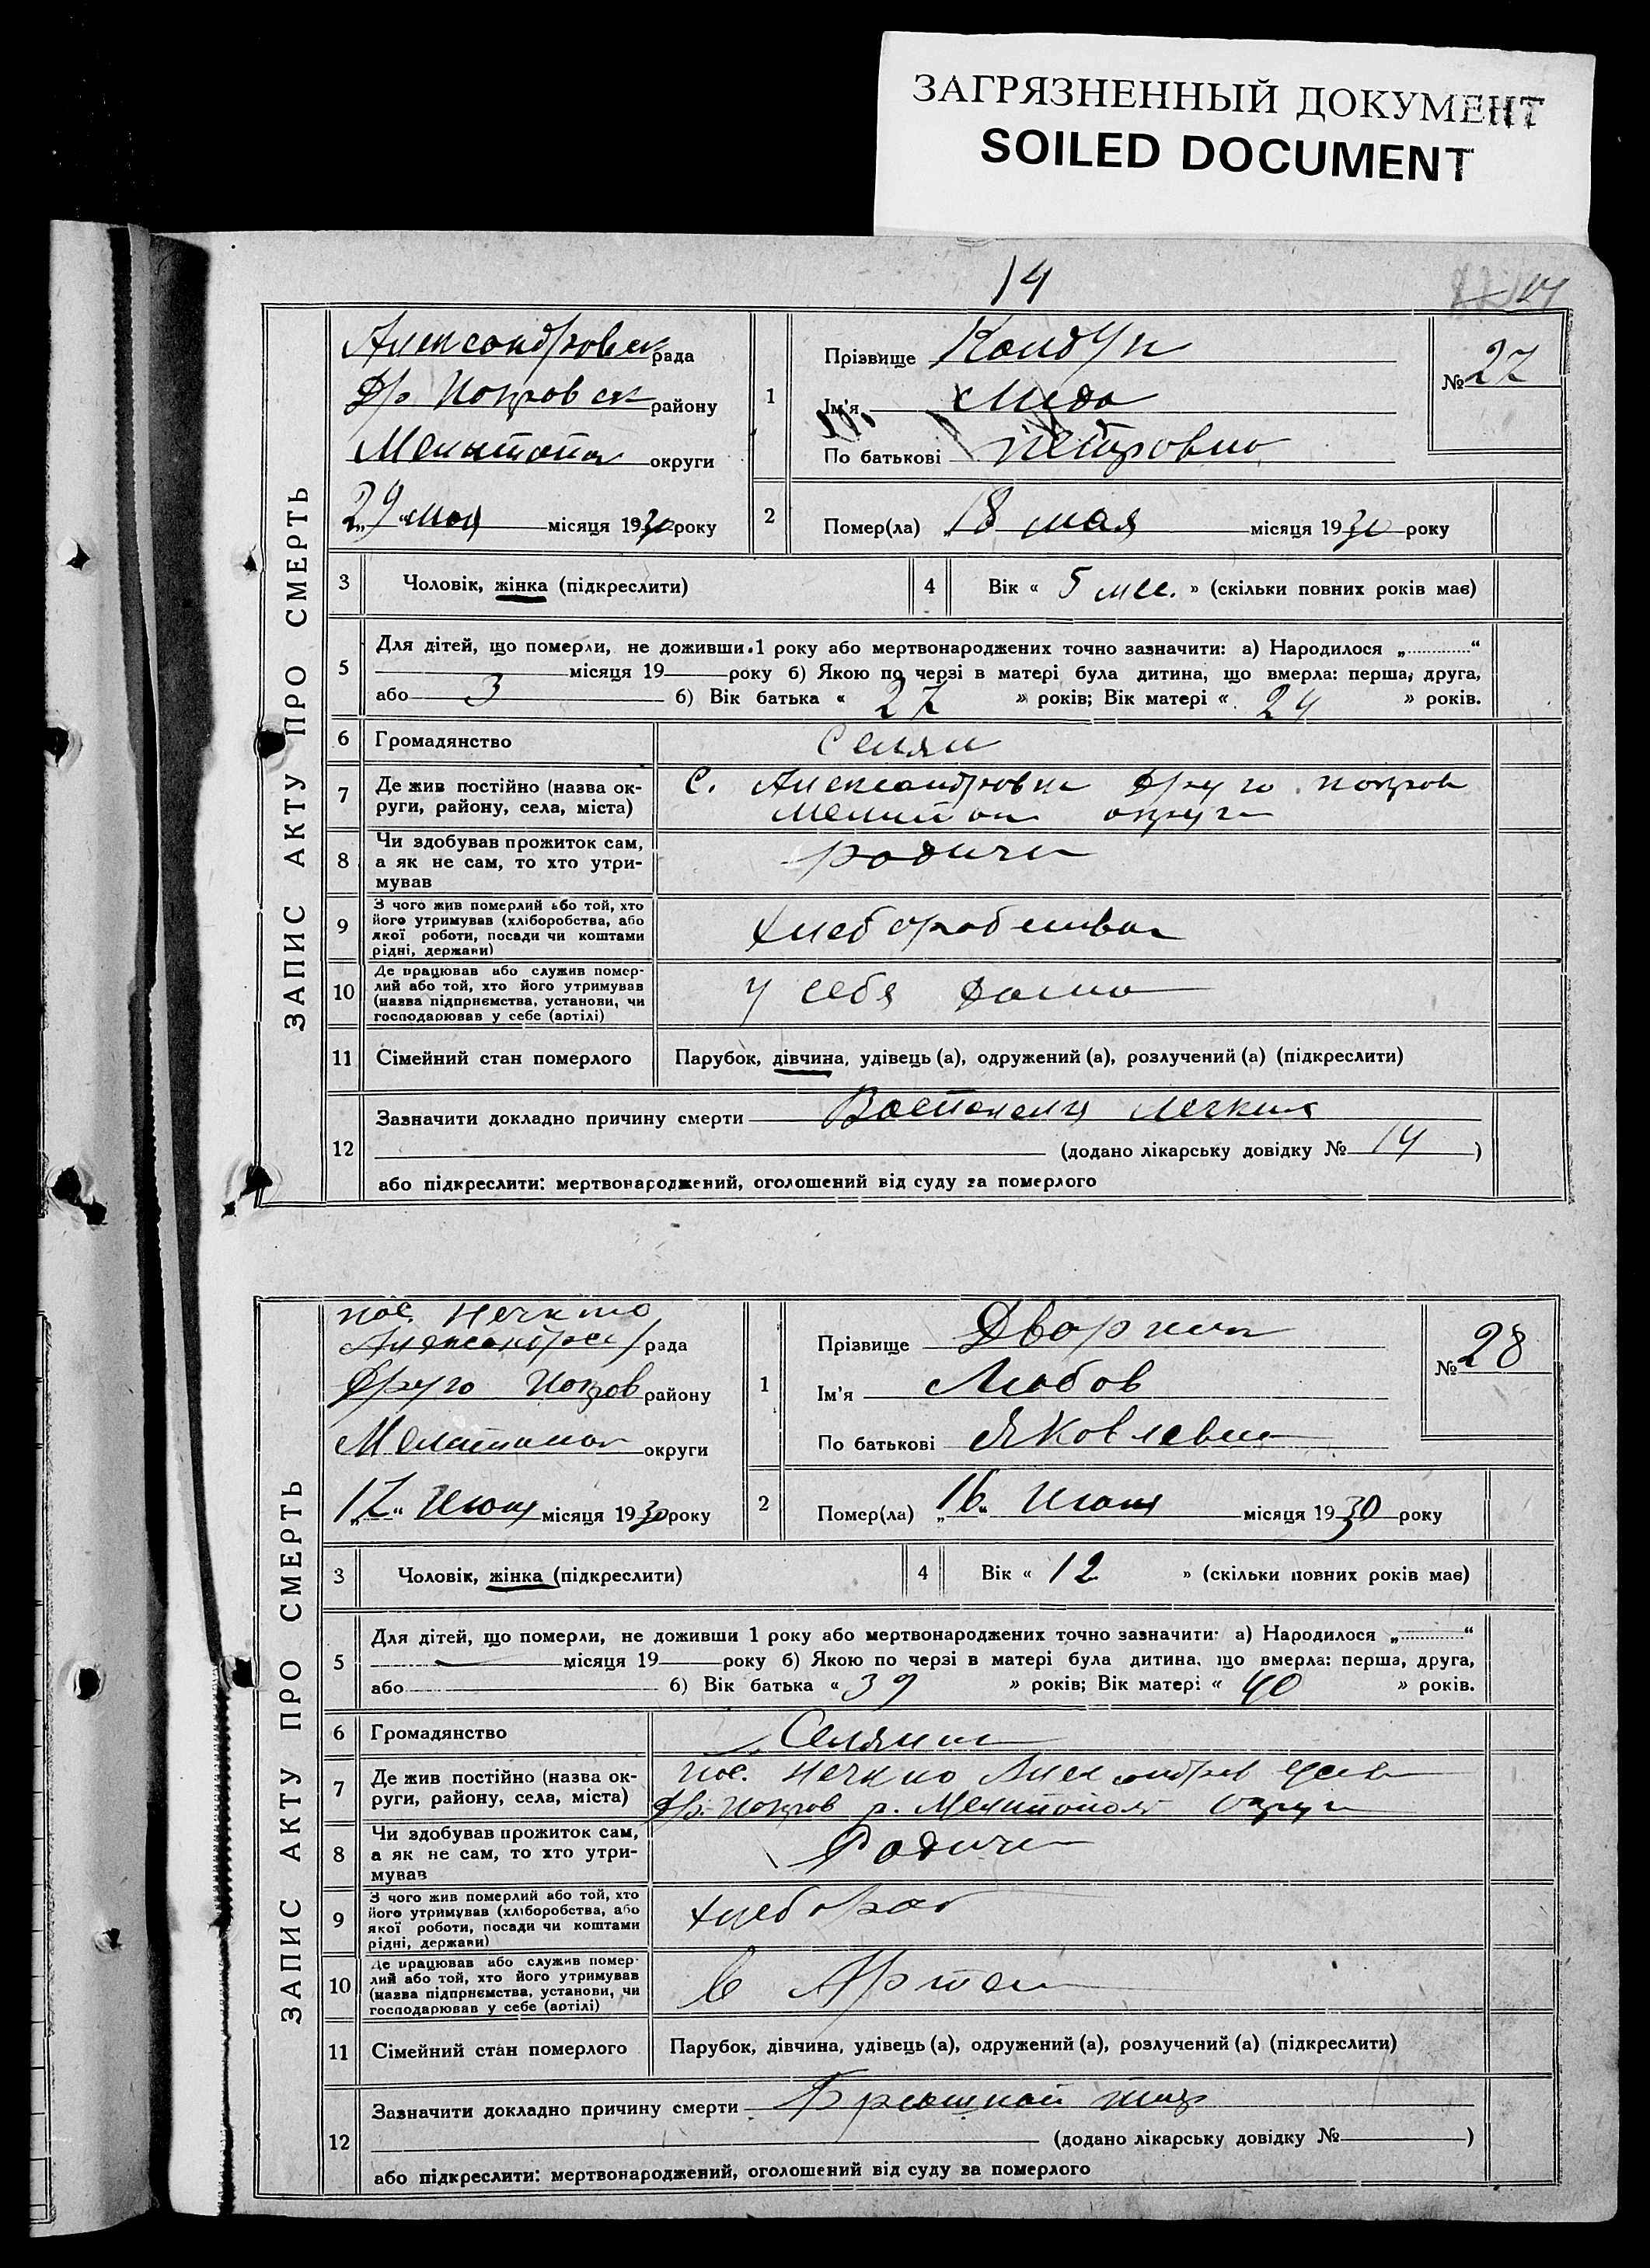 ЗАГРЯЗНЕННЫЙ ДОКУМЕНТ
SOILED DOCUMENT
14
14
ЗАПИС АКТУ ПРО СМЕРТЬ
Александровск рада
Др. Покровск району
Мелитоп округи
„29“ мая місяця 1930 року
1
Прізвище
Ім'я Лида
По батькові Петровна
№ 27
2
Помер(ла) „18 мая місяця 1930 року
3 Чоловік, жінка (підкреслити)
4 Вік « 5 мес. » (скільки повних років має)
5 Для дітей, що померли, не доживши 1 року або мертвонароджених точно зазначити: а) Народилося „..........“
місяця 19 року б) Якою по черзі в матері була дитина, що вмерла: перша, друга,
або 3 б) Вік батька « 27 » років; Вік матері « 24 » років.
6 Громадянство Селян
7 Де жив постійно (назва округи, району, села, міста) с. Александровка Друго покров
округа
8 Чи здобував прожиток сам, а як не сам, то хто утримував родичи
9 З чого жив померлий або той, хто його утримував (хліборобства, або якої роботи, посади чи коштами рідні, держави)
10 Де працював або служив померлий або той, хто його утримував (назва підприємства, установи, чи господарював у себе (артілі) у себя дома
11 Сімейний стан померлого Парубок, дівчина, удівець (а), одружений (а), розлучений (а) (підкреслити)
12 Зазначити докладно причину смерти легких
(додано лікарську довідку № 14 )
або підкреслити: мертвонароджений, оголошений від суду за померлого
ЗАПИС АКТУ ПРО СМЕРТЬ
пос.
рада
Друго Покров району
Мелитопол округи
„17“ Июня місяця 1930 року
1
Прізвище
Ім'я Любов
По батькові Яковлевна
№ 28
2
Помер(ла) „16“ Июня місяця 1930 року
3 Чоловік, жінка (підкреслити)
4 Вік « 12 » (скільки повних років має)
5 Для дітей, що померли, не доживши 1 року або мертвонароджених точно зазначити: а) Народилося „..........“
місяця 19 року б) Якою по черзі в матері була дитина, що вмерла: перша, друга,
або б) Вік батька « 39 » років; Вік матері « 40 » років.
6 Громадянство Селянин
7 Де жив постійно (назва округи, району, села, міста) пос.
Др. Покров р. округи
8 Чи здобував прожиток сам, а як не сам, то хто утримував Родичи
9 З чого жив померлий або той, хто його утримував (хліборобства, або якої роботи, посади чи коштами рідні, держави) хлебораб
10 Де працював або служив померлий або той, хто його утримував (назва підприємства, установи, чи господарював у себе (артілі) в Артел
11 Сімейний стан померлого Парубок, дівчина, удівець (а), одружений (а), розлучений (а) (підкреслити)
12 Зазначити докладно причину смерти Брюшной тиф
(додано лікарську довідку № )
або підкреслити: мертвонароджений, оголошений від суду за померлого